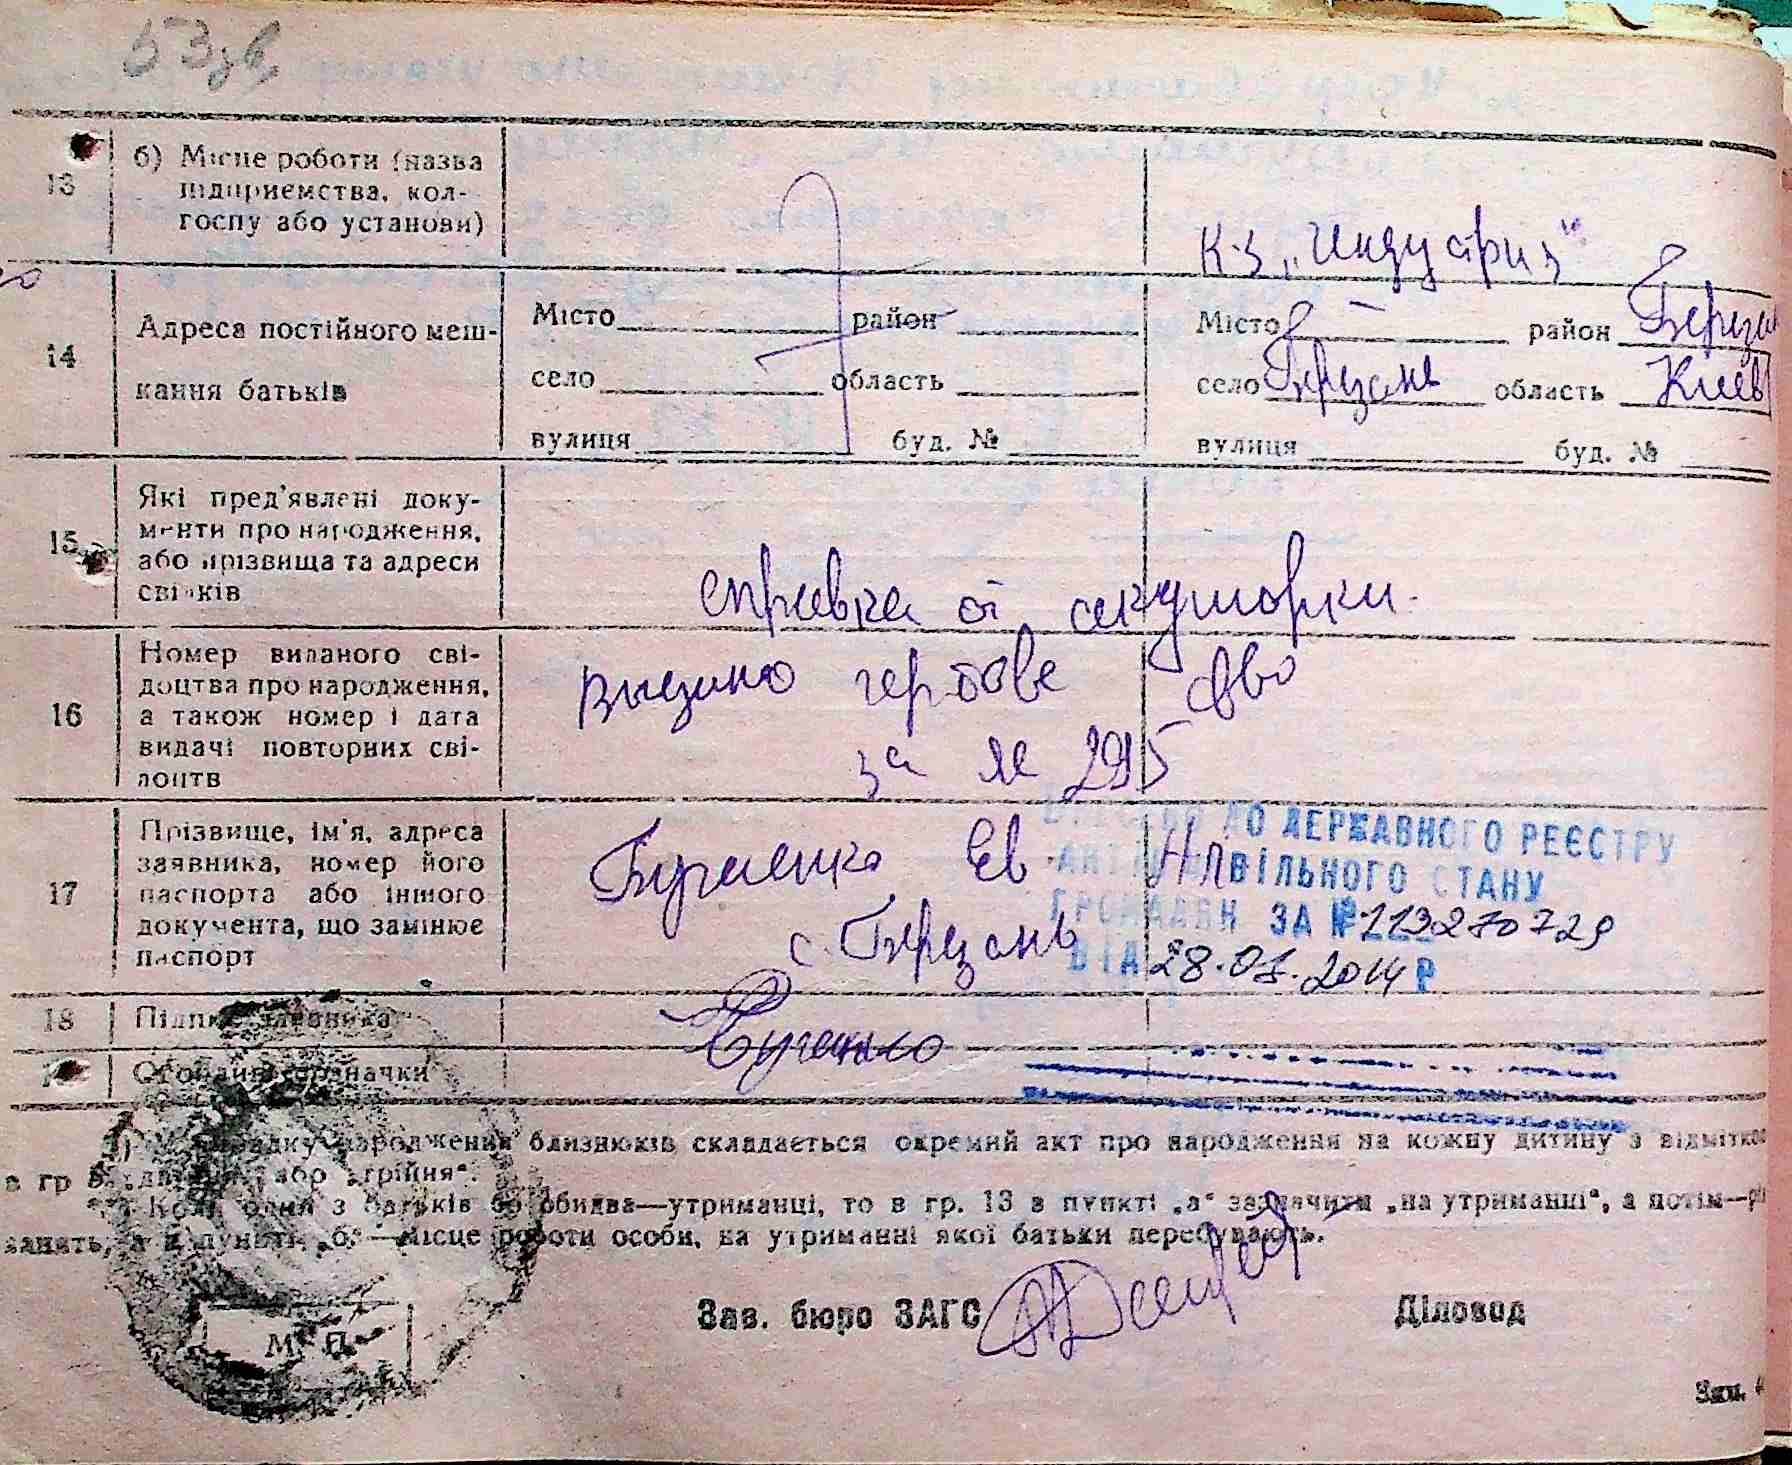 53 зв
13
б) Місце роботи (назва
підприємства, кол-
госпу або установи)
К-з „Индустрия"
14
Адреса постійного меш-
кання батьків
Місто район
село область
вулиця буд. №
Місто — район Березан
село Березань область Киев
вулиця буд. №
15
Які пред'явлені доку-
менти про народження,
або прізвища та адреси
свідків
справка от акушорки.
16
Номер виданого сві-
доцтва про народження,
а також номер і дата
видачі повторних сві-
доцтв
Выдано гербове с-во
за № 295
17
Прізвище, ім'я, адреса
заявника, номер його
паспорта або іншого
документа, що замінює
паспорт
Ев
с. Березань
ДО ДЕРЖАВНОГО РЕЄСТРУ
АКТІВ ЦИВІЛЬНОГО СТАНУ
ГРОМАДЯН ЗА № 113270729
ВІД 28.07.2014 Р
18
Підпис заявника
Особливі відзначки
1) У випадку народження близнюків складається окремий акт про народження на кожну дитину з відміткою
в гр 5 „двійня" або „трійня".
Коли один з батьків або обидва—утриманці, то в гр. 13 в пункті „а" зазначити „на утриманні", а потім—рід
занять, а в пункті „б"—місце роботи особи, на утриманні якої батьки перебувають.
М. П.
Зав. бюро ЗАГС
Діловод
Зам.